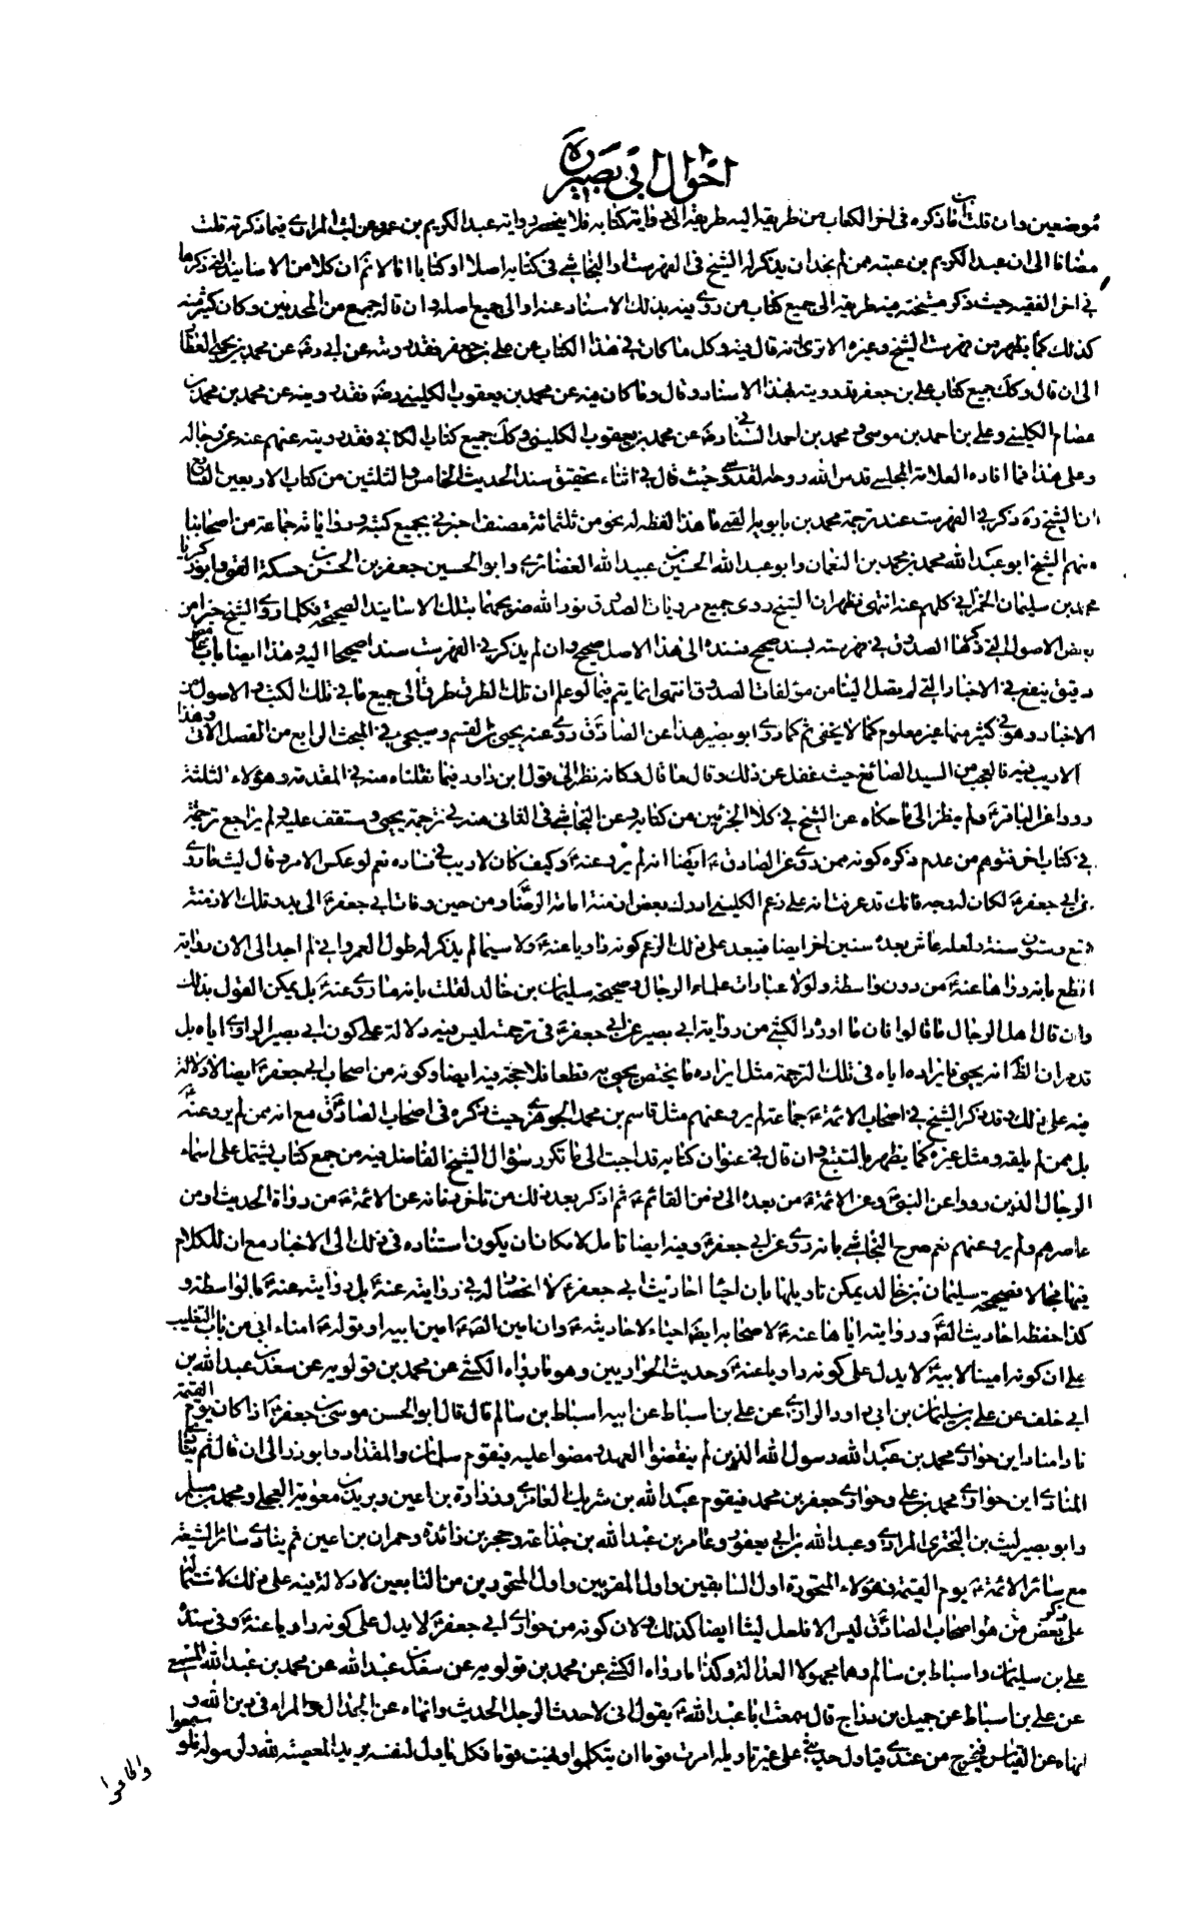 احوال ابی بصیره
موضعين وان قلت ما ذكره فى اخر الكتاب من طريقه اليه طريقه الى رواية كتابه فلا ينحصر رواية عبد الكريم بن عمرو عن ليث المرادى فيما ذكرته قلت
مضافا الى ان عبد الكريم بن عتبة ممن لم نجد ان يذكر له الشيخ فى الفهرست او النجاشى فى كتابه اصلا او كتابا انا لا نم ان كلا من الاسانيد التى ذكرها
فى اخر الفقيه حيث ذكر مشيخته فيه طريقه الى جميع كتاب من روى فيه بذلك الاسناد عنه او الى جميع اصله وان قاله جمع من المحدثين وكان كثير منه
كذلك كما يظهر من فهرست الشيخ وغيره الا ترى انه قال فيه وكل ما كان فى هذا الكتاب عن على بن جعفر فقد رويته عن ابى ره عن محمد بن يحيى العطار
الى ان قال وكك جميع كتاب على بن جعفر قد رويته بهذا الاسناد وقال وما كان فيه عن محمد بن يعقوب الكلينى رضه فقد رويته عن محمد بن محمد بن
عصام الكلينى وعلى بن احمد بن موسى ومحمد بن احمد السنانى رضه عن محمد بن يعقوب الكلينى وكك جميع كتاب الكافى فقد رويته عنهم عنه عن رجاله
وعلى هذا فما افاده العلامة المجلسى قدس الله روحه القدسى حيث قال فى اثناء تحقيق سند الحديث الخامس والثلثين من كتاب الاربعين
ان الشيخ ره ذكر فى الفهرست عند ترجمة محمد بن بابويه القمى ما هذا لفظه له نحو من ثلثمائة مصنف اخبرنى بجميع كتبه ورواياته جماعة من اصحابنا
منهم الشيخ ابو عبد الله محمد بن محمد بن النعمان وابو عبد الله الحسين بن عبيد الله الغضائرى وابو الحسين جعفر بن الحسن بن حسكة القمى وابو زكريا
محمد بن سليمان الحمرانى كلهم عنه انتهى فظهر ان الشيخ روى جميع مرويات الصدوق نور الله ضريحهما بتلك الاسانيد الصحيحة فكلما روى الشيخ خبرا من
بعض الاصول التى ذكرها الصدوق فى فهرسته بسند صحيح فسنده الى هذا الاصل صحيح وان لم يذكر فى الفهرست سندا صحيحا اليه وهذا ايضا باب
دقيق ينفع فى الاخبار التى لم يصل الينا من مؤلفات الصدوق انتهى انما يتم فيما لو علم ان تلك الطرق طرق الى جميع ما فى تلك الكتب والاصول من
الاخبار وهو فى كثير منها غير معلوم كما لا يخفى ثم كما روى ابو بصير هذا عن الصادق روى عنه يحيى بن القسم وسيجئ فى المبحث الرابع من الفصل الاتى وهذا
لا ريب فيه فالعجب من السيد الصائغ حيث غفل عن ذلك وقال ما قال وكانه نظر الى قول ابن داود فيما نقلناه منه فى المقدمة وهؤلاء الثلثة
رووا عن الباقر ولم ينظر الى ما حكاه عن الشيخ فى كلا الجزئين من كتابه وعن النجاشى فى الثانى منه فى ترجمة يحيى وستقف عليه ولم يراجع ترجمة
فى كتاب اخر فتوهم من عدم ذكره كونه ممن روى عن الصادق ايضا انه لم يرو عنه وكيف كان لا ريب فى فساده نعم لو عكس الامر وقال ليث ما روى
عن ابى جعفر لكان له وجه فانك قد عرفت انه على زعم الكلينى ادرك بعض ازمنة امامة الرضا ومن حين وفات ابى جعفر الى بدو تلك الازمنة
تسع وستون سنة ولعله عاش بعده سنين اخر ايضا فيبعد على ذلك الزعم كونه راويا عنه ولا سيما لم يذكر له طول العمر وانى لم اجد الى الان رواية
اقطع بانه رواها عنه من دون واسطة ولولا عبارات علماء الرجال وصحيحة سليمان بن خالد لقلت بانه ما روى عنه بل يمكن القول بذلك
وان قال اهل الرجال ما قالوا فان ما اورد الكشى من رواية ابى بصير عن ابى جعفر فى ترجمته ليس فيه دلالة على كون ابى بصير الراوى اياه بل
قد مر ان الظ انه يحيى فايراده اياه فى تلك الترجمة مثل ايراده ما يختص بيحيى به قطعا فلا حجة فيه ايضا وكونه من اصحاب ابى جعفر ايضا لا دلالة
فيه على ذلك وقد ذكر الشيخ فى اصحاب الائمة جماعة لم يرو عنهم مثل قاسم بن محمد الجوهرى حيث ذكره فى اصحاب الصادق مع انه ممن لم يرو عنه
بل ممن لم يلقه ومثل غيره كما يظهر بالتتبع وان قال فى عنوان كتابه قد اجبت الى ما تكرر سؤال الشيخ الفاضل فيه من جمع كتاب يشتمل على اسماء
الرجال الذين رووا عن النبى وعن الائمة من بعده الى زمن القائم ثم اذكر بعد ذلك من تاخر زمانه عن الائمة من رواة الحديث او من
عاصرهم ولم يرو عنهم نعم صرح النجاشى بانه روى عن ابى جعفر وفيه ايضا تامل لامكان ان يكون استناده فى ذلك الى الاخبار مع ان للكلام
فيها مجالا فصحيحة سليمان بن خالد يمكن تاويلها بان احياء احاديث ابى جعفر لا اختصاص له فى روايته عنه بل روايته عنه بالواسطة و
كذا حفظه احاديث الصادق وروايته اياها عنه لاصحابه ايضا احياء لاحاديثه وان امين الصادق امين ابيه او قوله امناء ابى من باب التغليب
على ان كونه امينا لابيه لا يدل على كونه راويا عنه وحديث الحواريين وهو ما رواه الكشى عن محمد بن قولويه عن سعد بن عبد الله بن
ابى خلف عن على بن سليمان بن داود الرازى عن على بن اسباط عن ابيه اسباط بن سالم قال قال ابو الحسن موسى بن جعفر اذا كان يوم القيمة
نادى مناد اين حوارى محمد بن عبد الله رسول الله الذين لم ينقضوا العهد ومضوا عليه فيقوم سلمان والمقداد وابو ذر الى ان قال ثم ينادى
المنادى اين حوارى محمد بن على وحوارى جعفر بن محمد فيقوم عبد الله بن شريك العامرى وزرارة بن اعين وبريد بن معوية العجلى ومحمد بن مسلم
وابو بصير ليث بن البخترى المرادى وعبد الله بن ابى يعفور وعامر بن عبد الله بن جذاعة وحجر بن زائدة وحمران بن اعين ثم ينادى سائر الشيعة
مع سائر الائمة يوم القيمة فهؤلاء المتحورة اول السابقين واول المقربين واول المتحورين من التابعين لا دلالة فيه على ذلك لاشتماله
على ذكر بعض من هو من اصحاب الصادق ليس الا فلعل ليثا ايضا كذلك بل لان كونه من حوارى ابى جعفر لا يدل على كونه راويا عنه وفى سنده
على بن سليمان واسباط بن سالم وهما مجهولا العدالة وكذا ما رواه الكشى عن محمد بن قولويه عن سعد بن عبد الله عن محمد بن عبد الله المسمعى
عن على بن اسباط عن جميل بن دراج قال سمعت ابا عبد الله يقول انى لاحدث الرجل الحديث وانهاه عن الجدال والمراء فى دين الله و
انهاه عن القياس فيخرج من عندى فيتاول حديثى على غير تاويله امرت قوما ان يتكلموا ونهيت قوما فكل تاول لنفسه يريد المعصية لله ولرسوله فلو سمعوا
واطاعوا